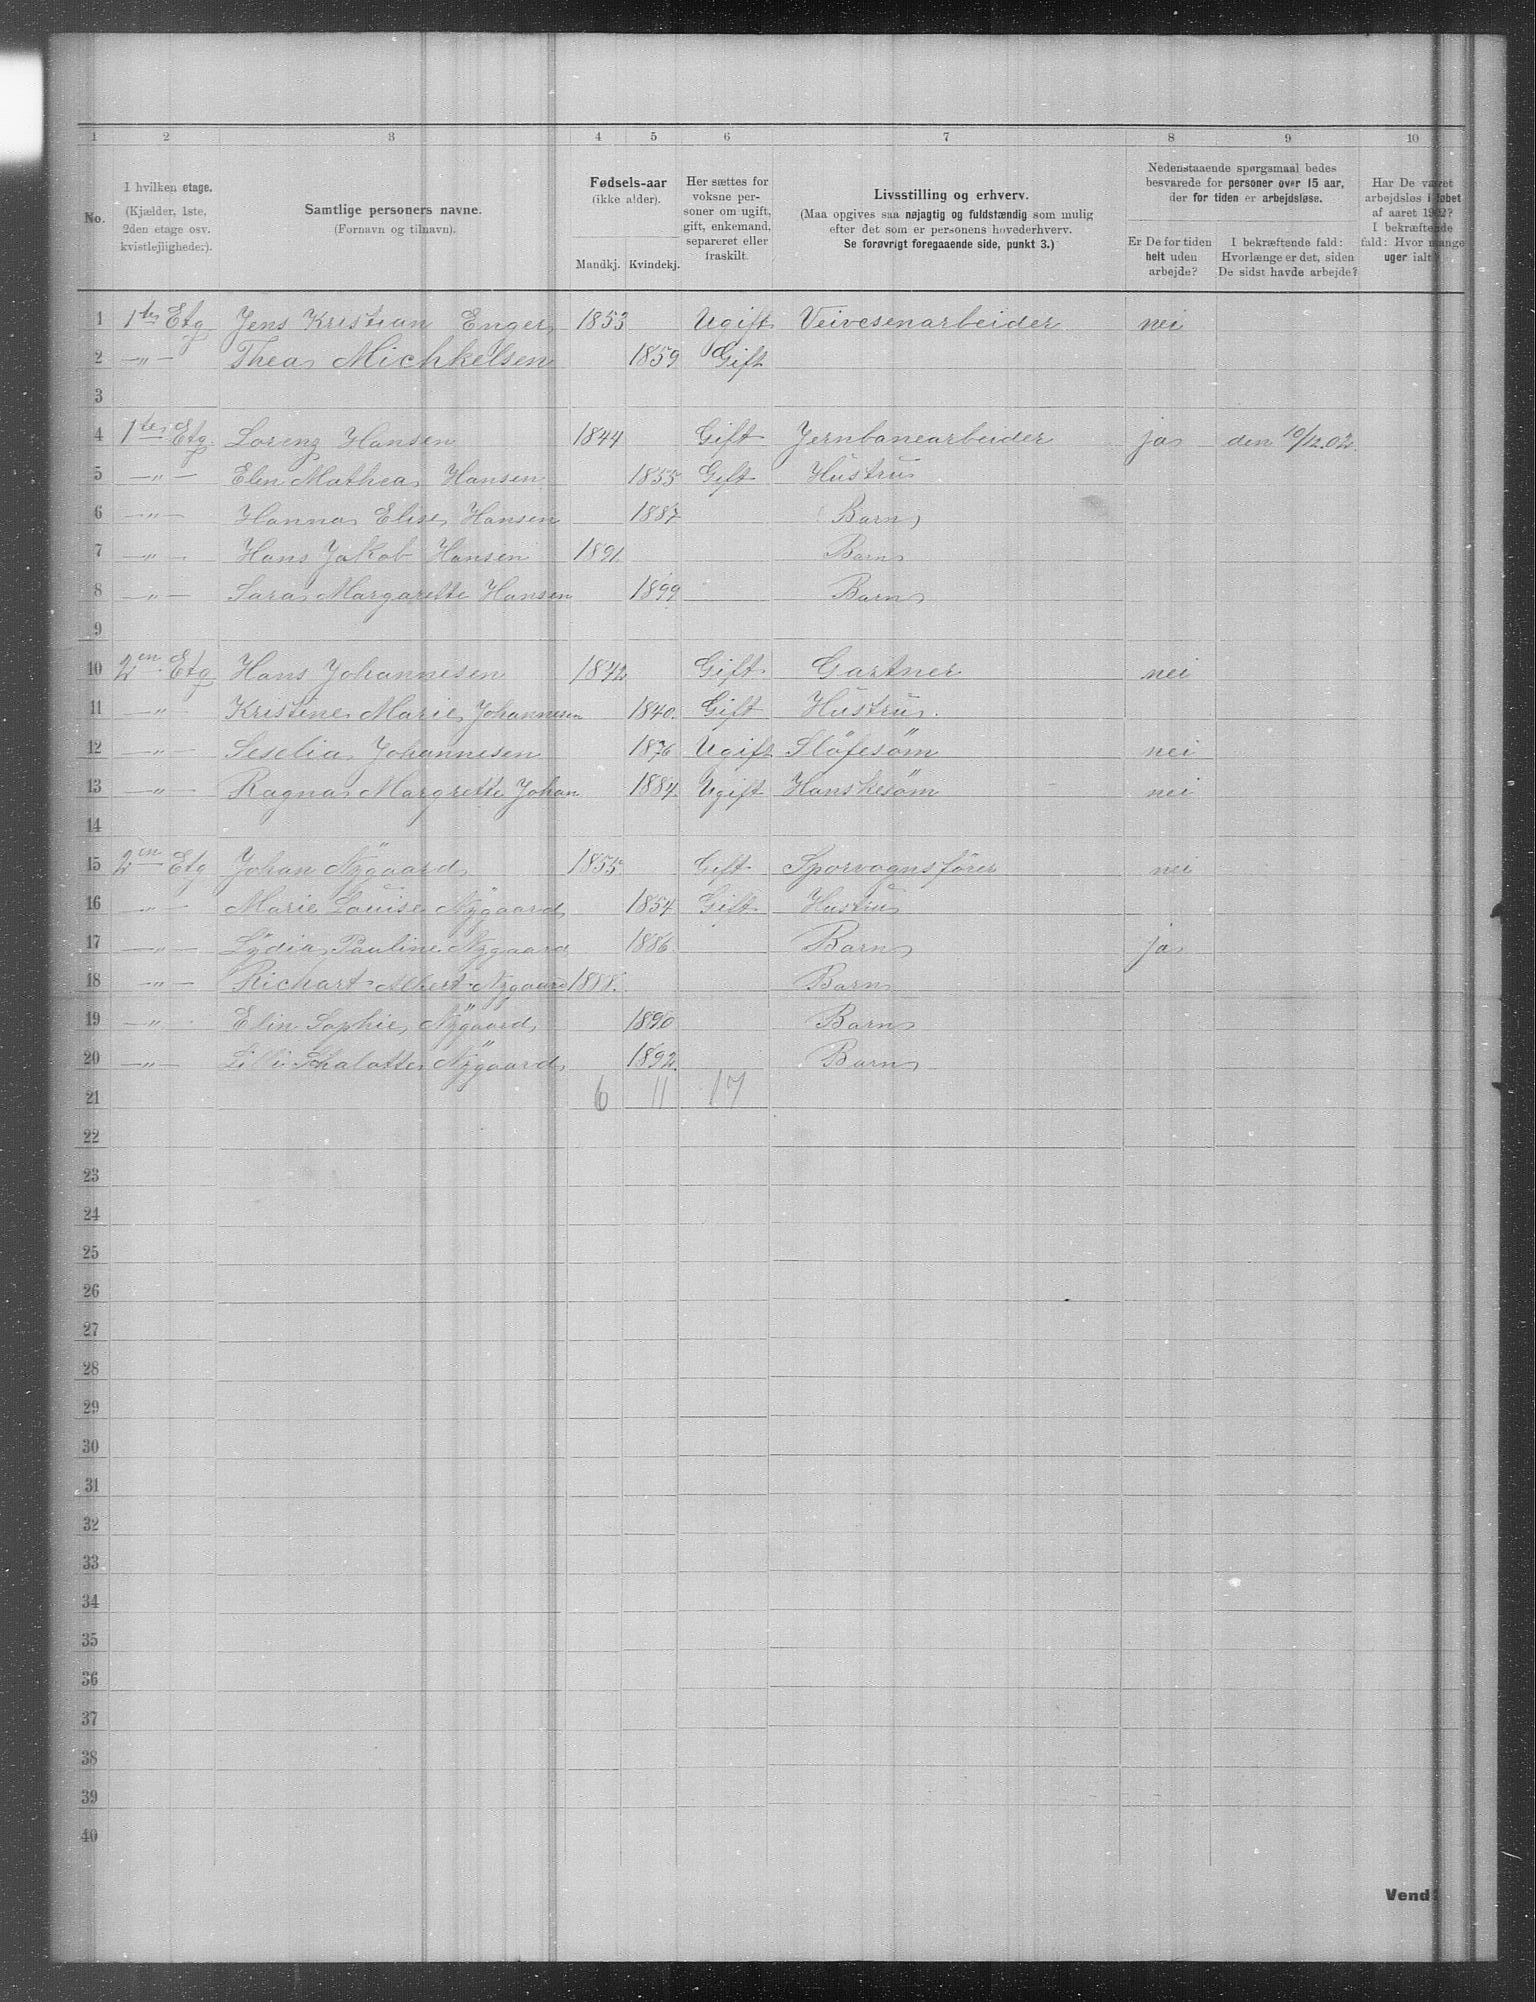 1 2 3 4 5 6 7 8 9 10
No.
I hvilken etage.
(Kjælder, 1ste,
2den etage osv.
kvistlejligheder).
Samtlige personers navne.
(Fornavn og tilnavn).
Fødsels-aar
(ikke alder).
Mandkj. Kvindekj.
Her sættes for
voksne per-
soner om ugift,
gift, enkemand,
separeret eller
fraskilt.
Livsstilling og erhverv.
(Maa opgives saa nøjagtig og fuldstændig som mulig
efter det som er personens hovederhverv.
Se forøvrigt foregaaende side, punkt 3.)
Nedenstaaende spørgsmaal bedes
besvarede for personer over 15 aar,
der for tiden er arbejdsløse.
Er De for tiden
helt uden
arbejde?
I bekræftende fald:
Hvorlænge er det, siden
De sidst havde arbejde?
Har De været
arbejdsløs i løbet
af aaret 1902?
I bekræftende
fald: Hvor mange
uger ialt?
1 1te Etg Jens Kristian Enger 1853 Ugift Veivesenarbeider nei
2 —"— Thea Michkelsen 1859 Gift
3
4 1te Etg. Lorenz Hansen 1844 Gift Jernbanearbeider ja den 10/12.02.
5 —"— Elen Mathea Hansen 1855 Gift Hustru
6 —"— Hanna Elise Hansen 1887 Barn
7 —"— Hans Jakob Hansen 1891. Barn
8 —"— Sara Margarette Hansen 1899 Barn
9
10 2en Etg Hans Johannesen 1842 Gift Gartner nei
11 —"— Kristine Marie Johannesen 1840. Gift Hustru.
12 —"— Seselia Johannesen 1876 Ugift Slöfesöm nei
13 —"— Ragna Margrette Johan 1884. Ugift Hanskesöm nei
14
15 2en Etg Johan Nygaard 1855 Gift Sporvognsfører nei
16 —"— Marie Louise Nygaard 1854 Gift Hustru
17 —"— Lydia Pauline Nygaard 1886. Barn ja
18 —"— Richart Albert Nygaard 1888. Barn
19 —"— Elin Sophie Nygaard 1890 Barn
20 —"— Lilli Schalatte Nygaard 1892. Barn
21 6 11 17
22
23
24
25
26
27
28
29
30
31
32
33
34
35
36
37
38
39
40
Vend!